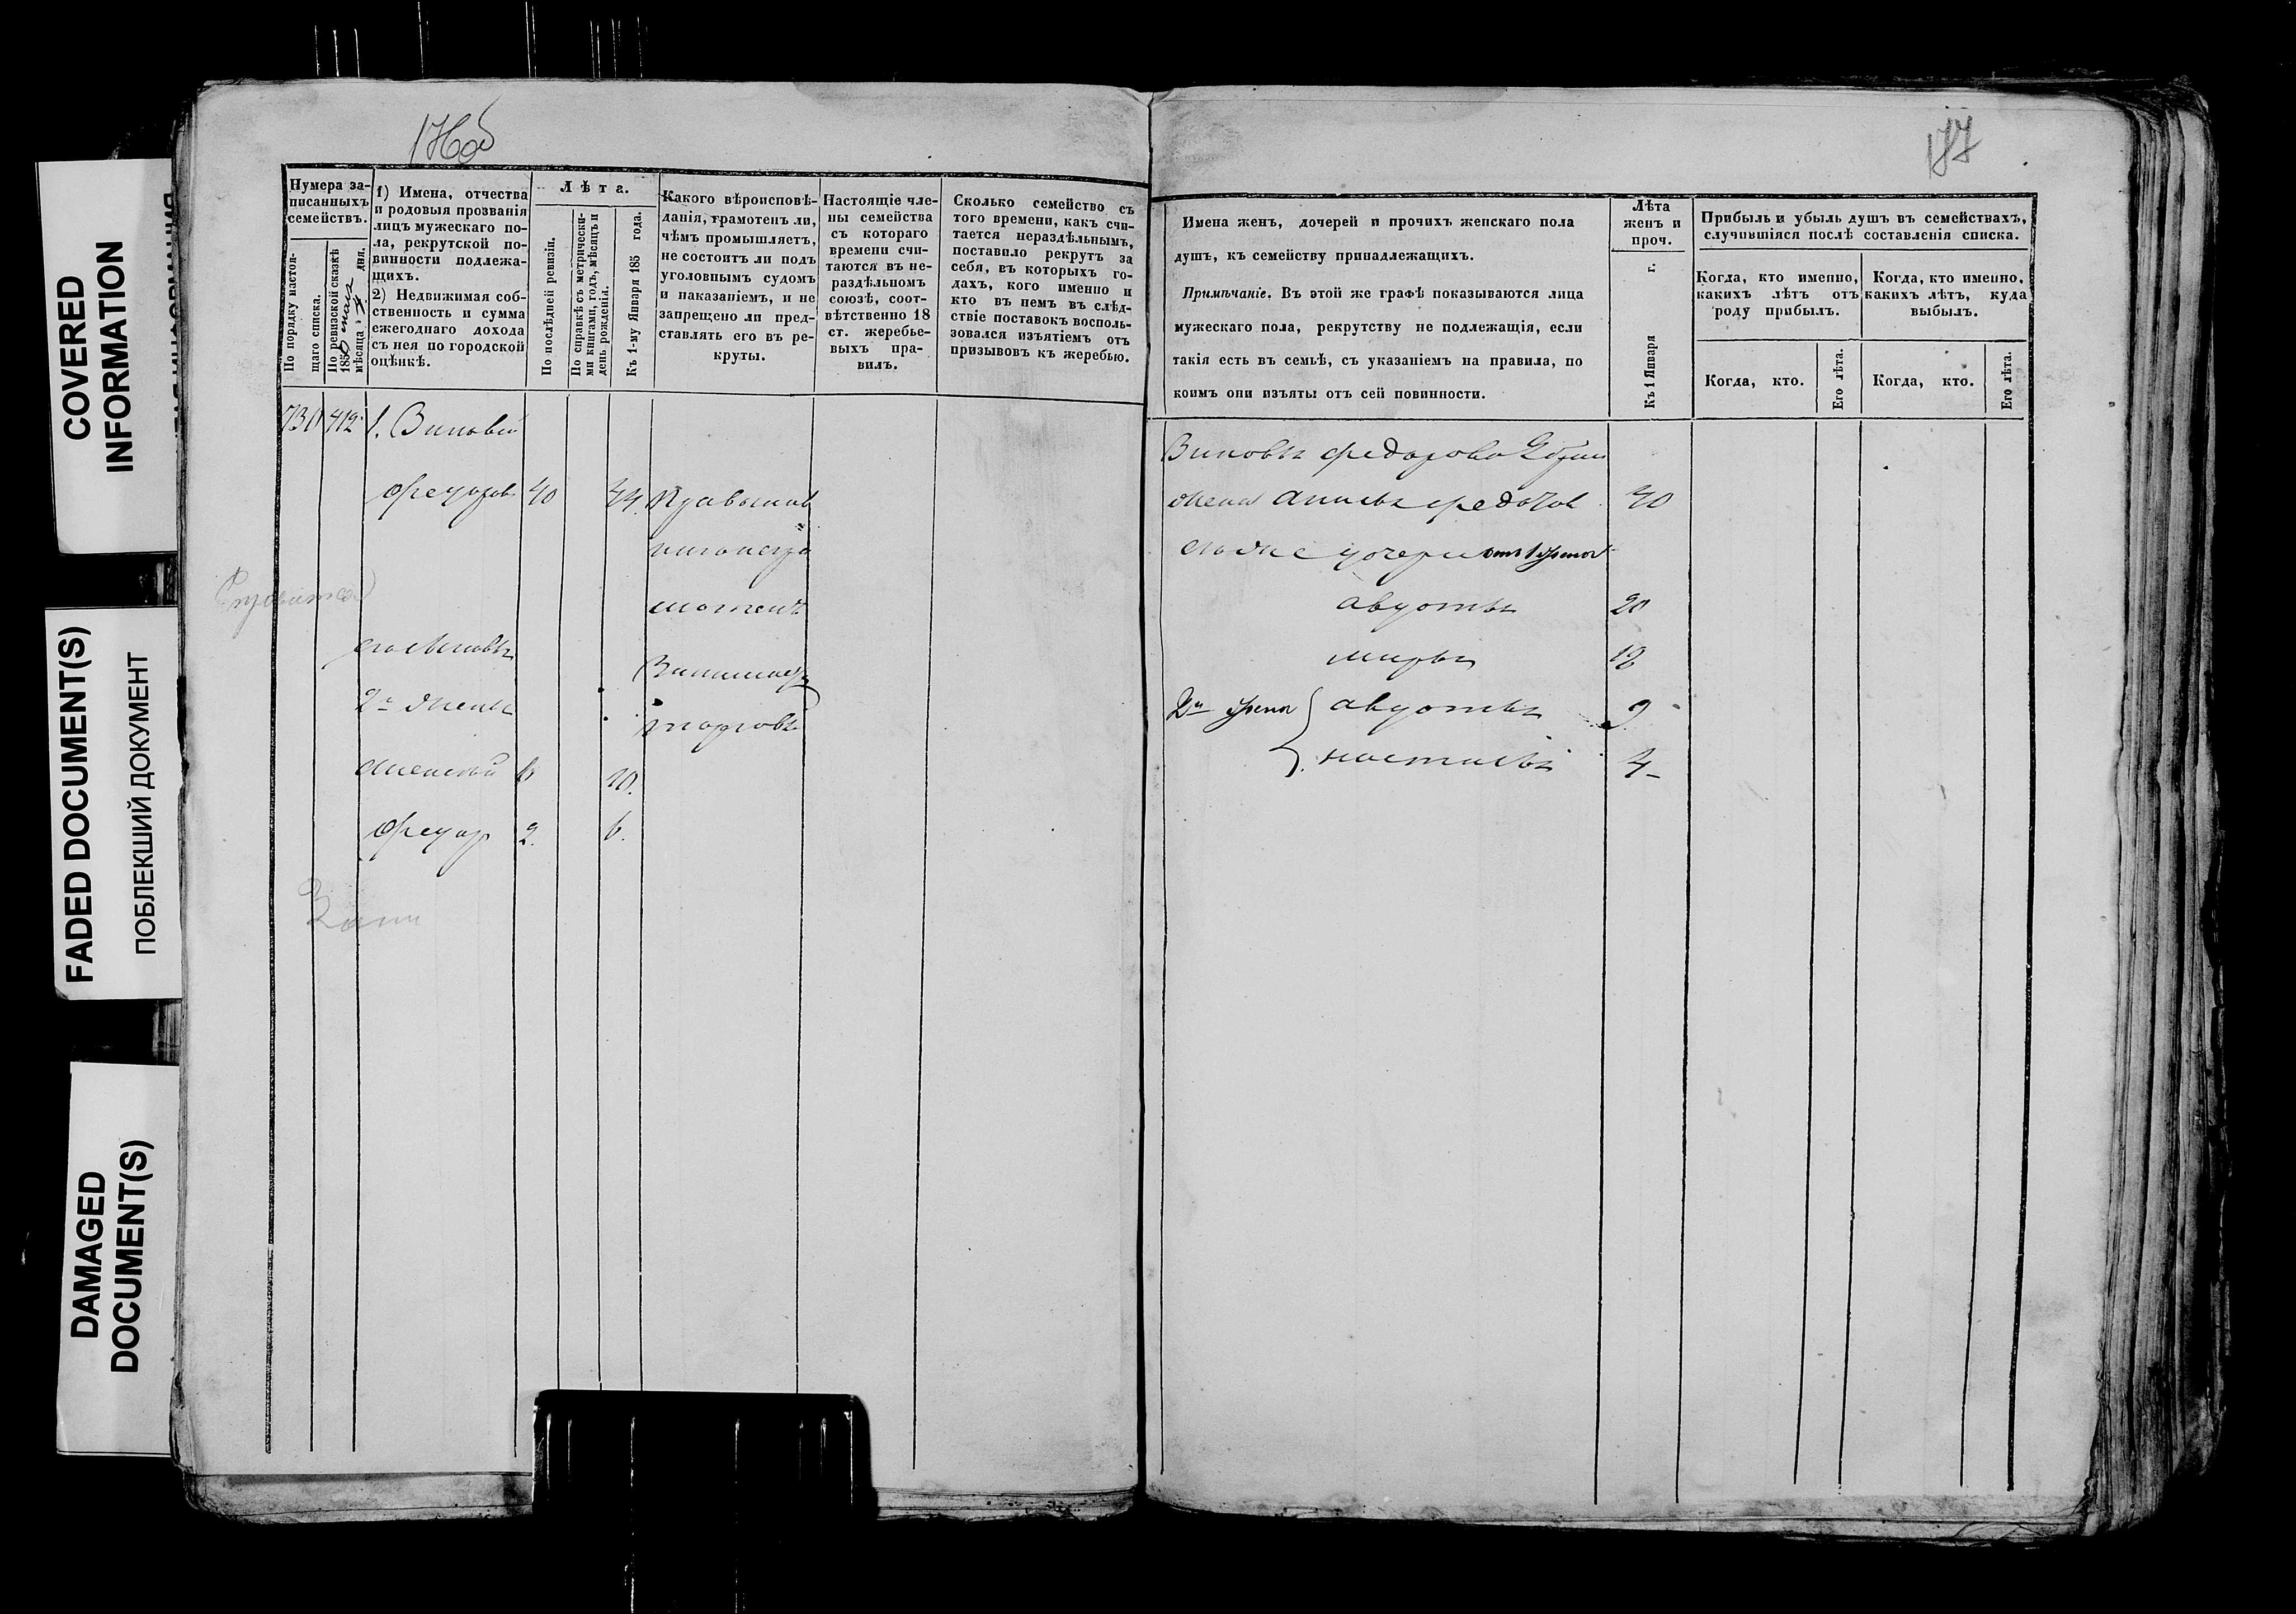 COVERED
INFORMATION
FADED DOCUMENT(S)
ПОБЛЕКШИЙ ДОКУМЕНТ
DAMAGED
DOCUMENT(S)
176об
Нумера за-
писанныхъ
семействъ.
По порядку настоя-
щаго списка.
По ревизской сказкѣ
1850 мая
мѣсяца дня.
1) Имена, отчества
и родовыя прозванія
лицъ мужескаго по-
ла, рекрутской по-
винности подлежа-
щихъ.
2) Недвижимая соб-
ственность и сумма
ежегоднаго дохода
съ нея по городской
оцѣнкѣ.
Лѣта.
По послѣдней ревизіи.
По справкѣ съ метрически-
ми книгами, годъ, мѣсяцъ и
день рожденія.
Къ 1-му Января 185 года.
Какого вѣроисповѣ-
данія, грамотенъ ли,
чѣмъ промышляетъ,
не состоитъ ли подъ
уголовнымъ судомъ
и наказаніемъ, и не
запрещено ли пред-
ставлять его въ ре-
круты.
Настоящіе чле-
ны семейства
съ котораго
времени счи-
таются въ не-
раздѣльномъ
союзѣ, соот-
вѣтственно 18
ст. жеребье-
выхъ пра-
вилъ.
Сколько семейство съ
того времени, какъ счи-
тается нераздѣльнымъ,
поставило рекрутъ за
себя, въ которыхъ го-
дахъ, кого именно и
кто въ немъ въ слѣд-
ствіе поставокъ восполь-
зовался изъятіемъ отъ
призывовъ къ жеребью.
412
1. Зиновей
Федоров 40 44
его сыновья
2й жены
Алексей 6 10.
Федор 2. 6.
Занимается
торговлею
177
Имена женъ, дочерей и прочихъ женскаго пола
душъ, къ семейству принадлежащихъ.
Примѣчаніе. Въ этой же графѣ показываются лица
мужескаго пола, рекрутству не подлежащія, если
такія есть въ семьѣ, съ указаніемъ на правила, по
коимъ они изъяты отъ сей повинности.
Лѣта
женъ и
проч.
Къ 1 Января г.
Прибыль и убыль душъ въ семействахъ,
случившіяся послѣ составленія списка.
Когда, кто именно,
какихъ лѣтъ отъ
роду прибылъ.
Когда, кто именно,
какихъ лѣтъ, куда
выбылъ.
Когда, кто.
Его лѣта.
Когда, кто.
Его лѣта.
Зиновья Федорова
жена Федотов 40
дочери от 1 жены
Авдотья 20
Марья
2й жены Авдотья 9
Настасья 4